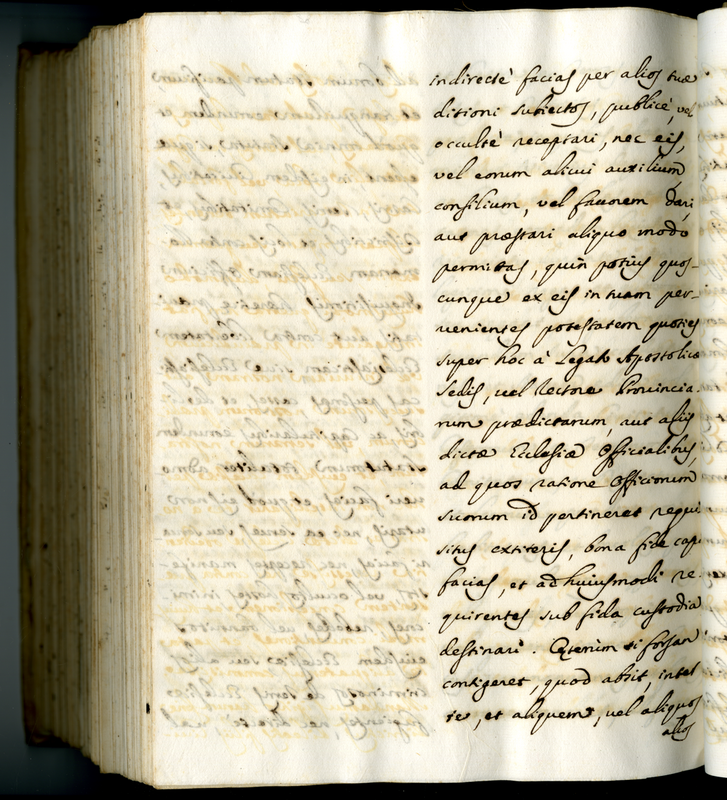 indirectè facias per alios tuæ
ditioni subiectos, publicè, vel
occultè receptari, nec eis,
vel eorum alicui auxilium
consilium, vel fauorem dari,
aut præstari aliquo modo
permittas, quin potius quos-
cunque ex eis in tuam per-
uenientes potestatem quoties
super hoc à Legato Apostolicæ
Sedis, uel Rectore Prouincia
rum prædictarum, aut aliis
dictæ Ecclesiæ Officialibus,
ad quos ratione Officiorum
suorum id pertineret requi
situs extiteris, bona fide capi
facias, et ad huiusmodi re-
quirentes sub fida custodia
destinari. Cæterùm si forsan
contigeret, quod absit, inter
te, et aliquem, vel aliquos
alios